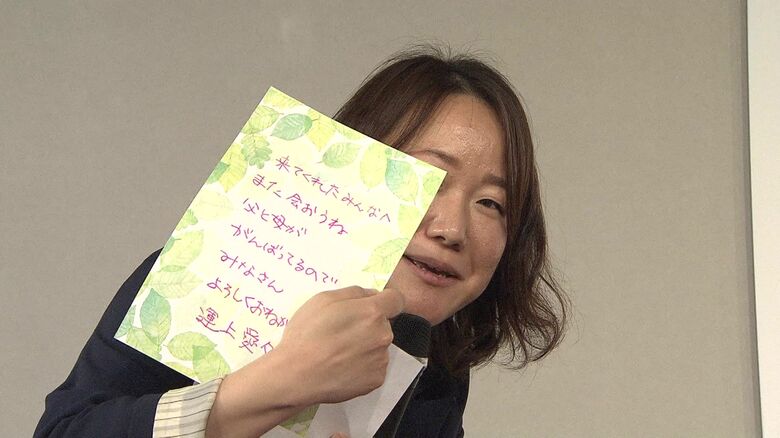 来てくれたみんなへ
また会おうね
父と母が
がんばってるので
みなさん
よろしくおねが
運上愛